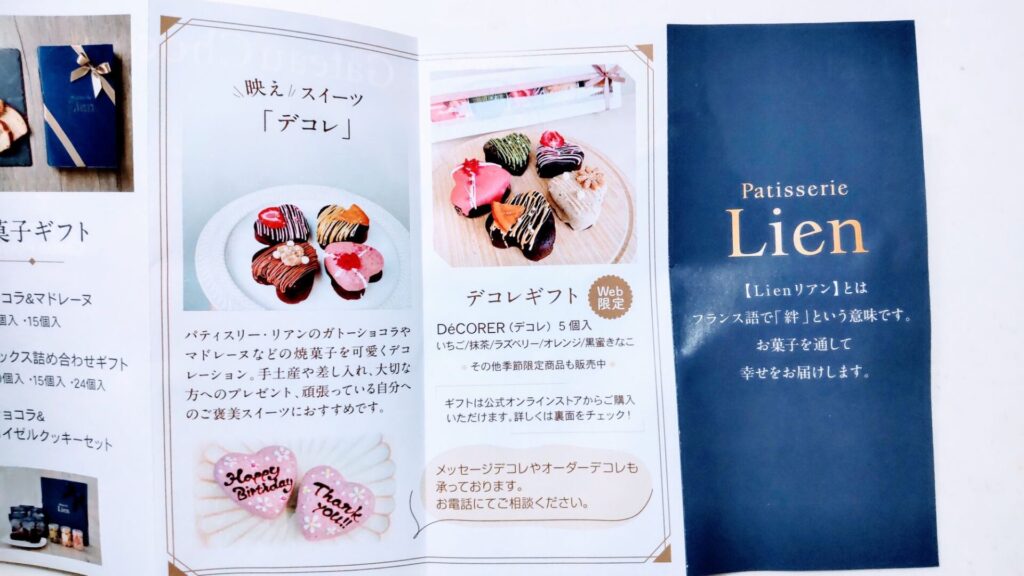 Lien
菓子ギフト
コラ&マドレーヌ
個入・15個入
ックス詰め合わせギフト
個入・15個入・24個入
ョコラ&
イゼルクッキーセット
Lien
映え スイーツ
「デコレ」
パティスリー・リアンのガトーショコラや
マドレーヌなどの焼菓子を可愛くデコ
レーション。手土産や差し入れ、大切な
方へのプレゼント、頑張っている自分へ
のご褒美スイーツにおすすめです。
Happy
Birthday
Thank
you!!
デコレギフト
Web
限定
DéCORER（デコレ）5個入
いちご/抹茶/ラズベリー/オレンジ/黒蜜きなこ
その他季節限定商品も販売中
ギフトは公式オンラインストアからご購入
いただけます。詳しくは裏面をチェック！
メッセージデコレやオーダーデコレも
承っております。
お電話にてご相談ください。
Patisserie
Lien
【Lienリアン】とは
フランス語で「絆」という意味です。
お菓子を通して
幸せをお届けします。